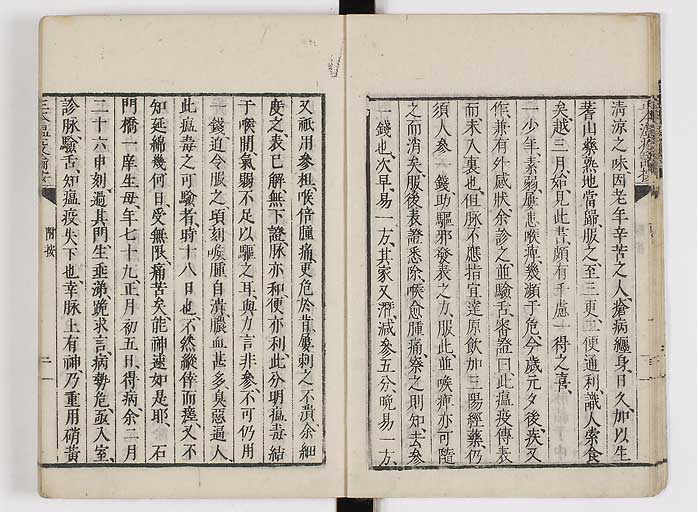 清涼之味因老年辛苦之人瘡病纏身日久加以生
耆山藥熟地當歸服之至三更二便通利識人索食
矣越三月始見此書頗有千慮一得之喜
一少年素弱屢患喉痺幾瀕于危今歲元夕後疾又
作兼有外感狀余診之並驗舌審證曰此瘟疫傳表
而未入裏也但脉不應指宜達原飲加三陽經藥仍
須人參一錢助驅邪發表之力服此並喉痺亦可隨
之而消矣服後表證悉除喉愈腫痛察之則知去參
一錢也次早易一方其家又潛減參五分晚易一方
又祗用參粗喉倍腫痛更危於昔屢刺之不潰余細
度之表已解無下證脉亦和便亦利此分明瘟毒結
于喉間氣弱不足以驅之耳與方言非參不可仍用
一錢迫令服之頃刻喉腫自潰膿血甚多臭惡逼人
此瘟毒之可驗者時十八日也不然縱倖而痊又不
知延綿幾何日受無限痛苦矣能神速如是耶 石
門橋一庠生母年七十九正月初五日得病余二月
二十六申刻過其門生垂涕跪求言病勢危亟入室
診脉驗舌知瘟疫失下也幸脉上有神乃重用硝黃
醫按
二